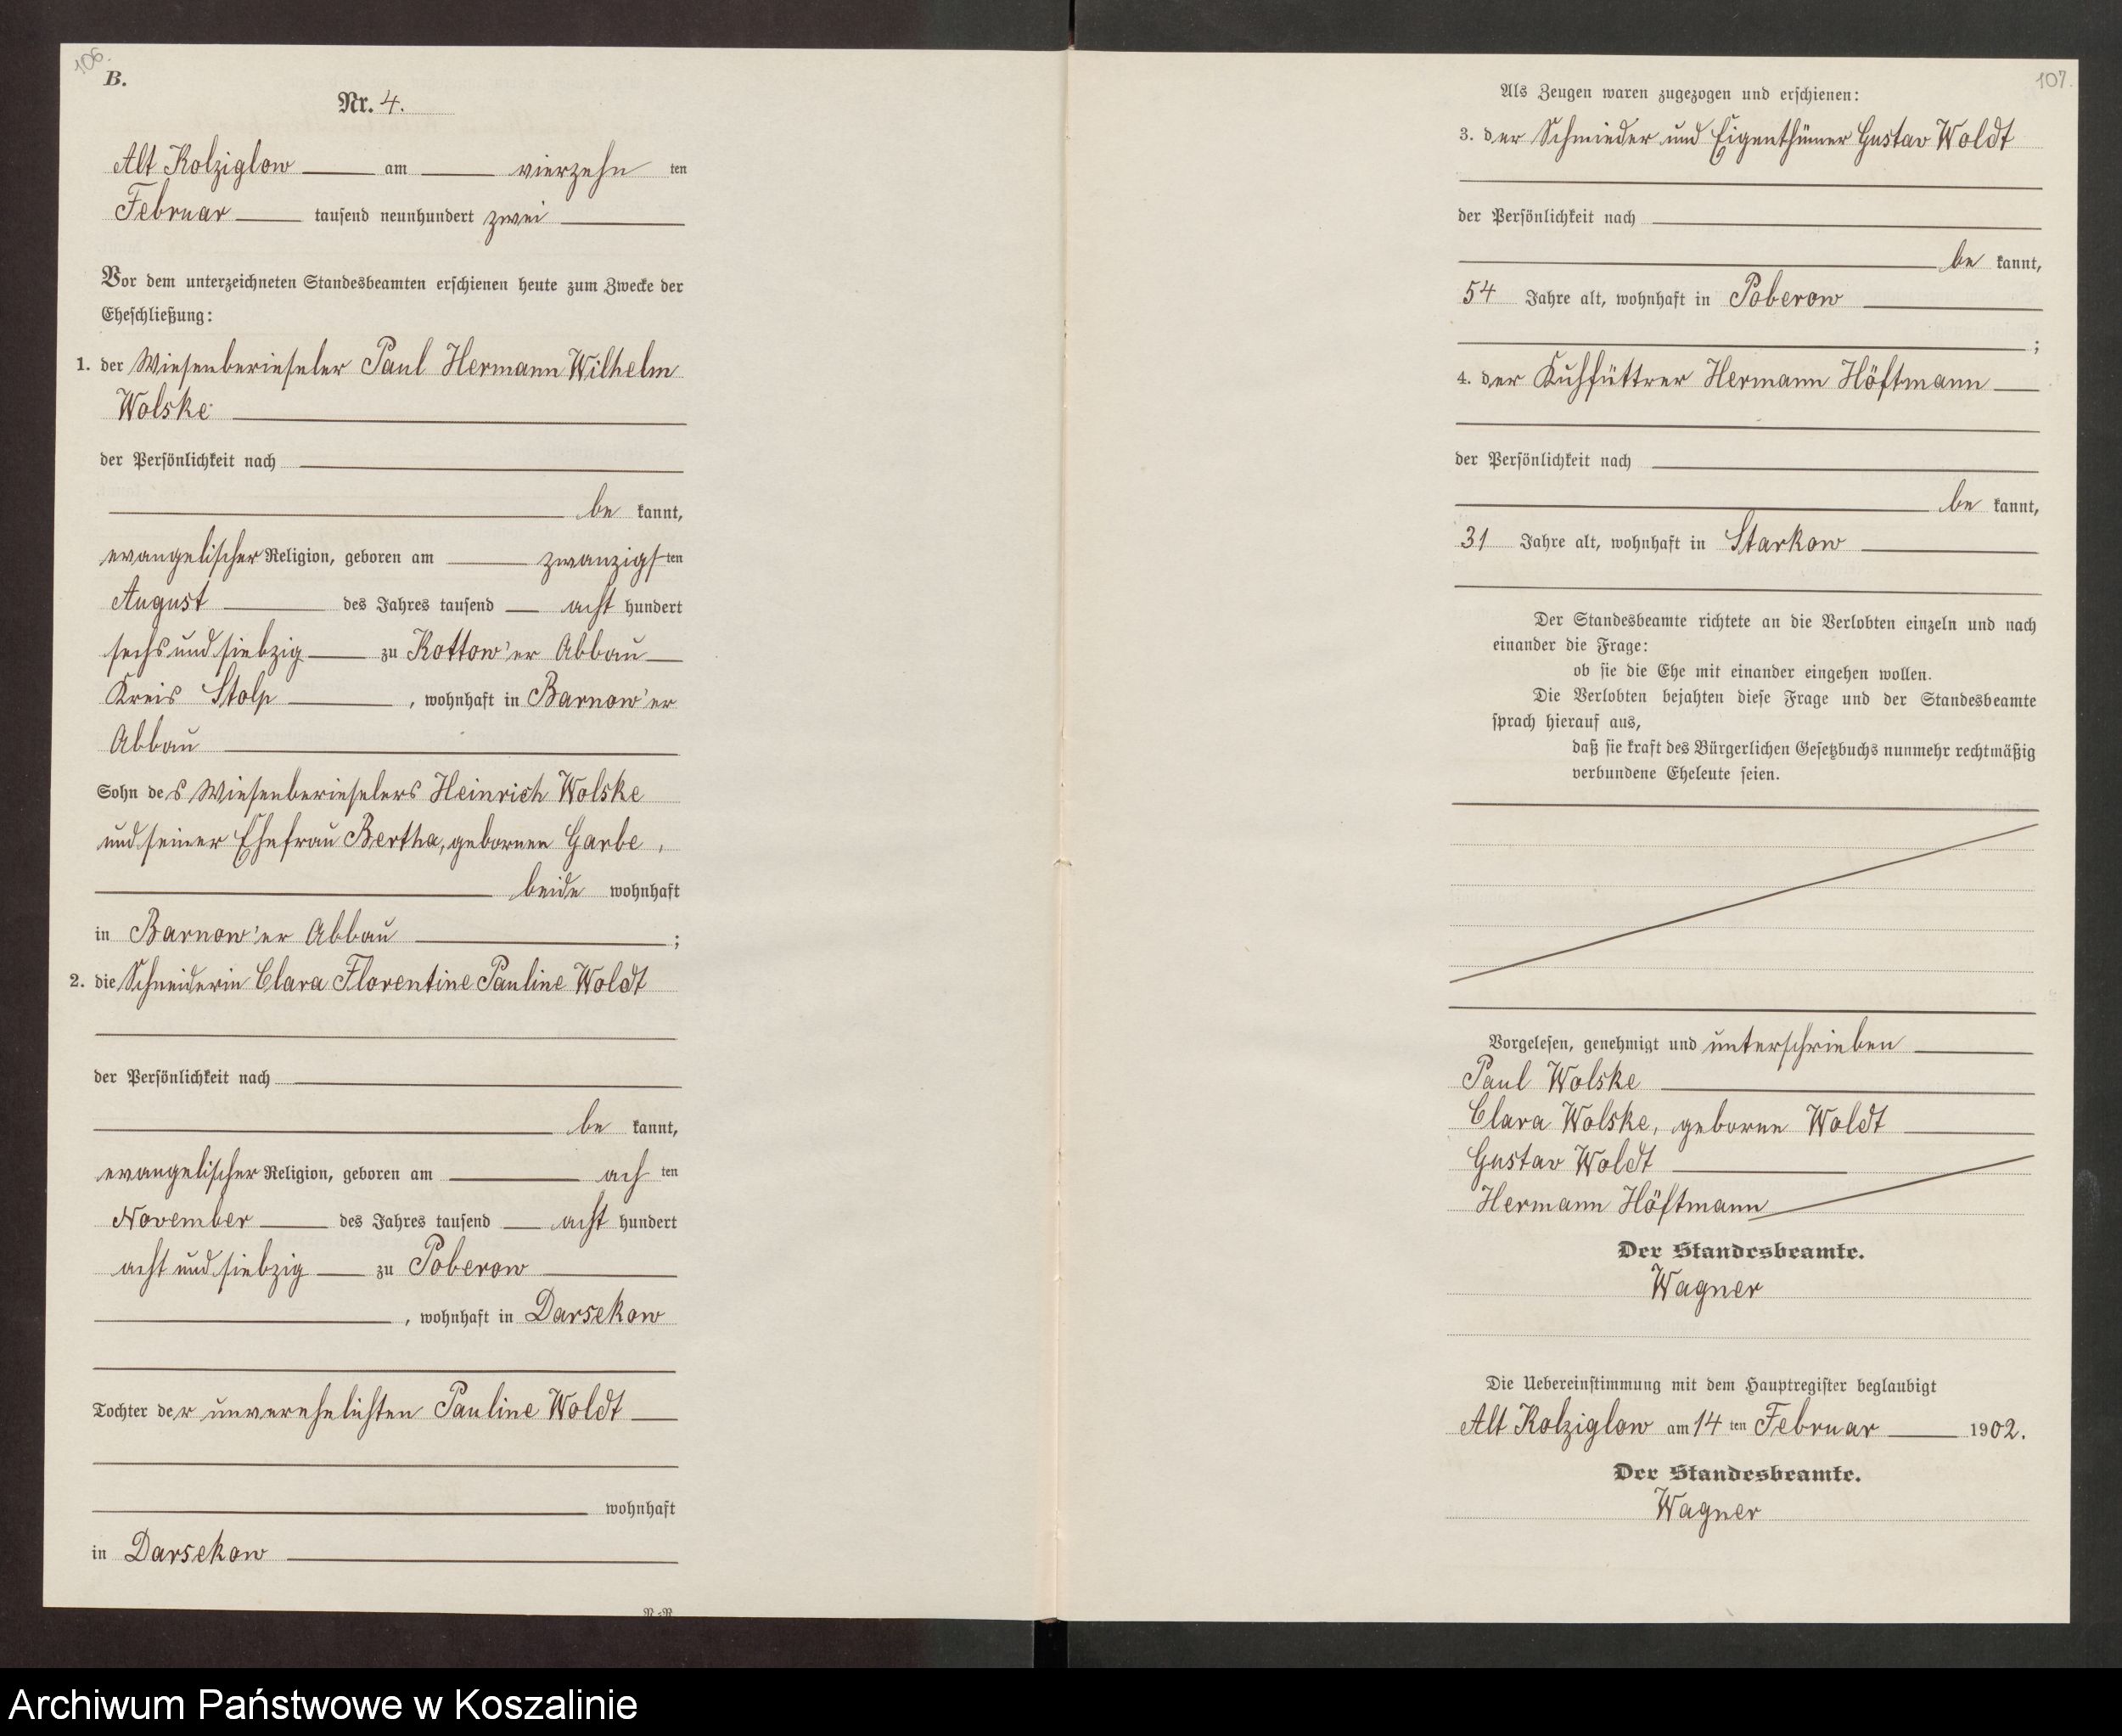 106.
B.
Nr. 4.
Alt Kolziglow am vierzehn ten
Februar tausend neunhundert zwei
Vor dem unterzeichneten Standesbeamten erschienen heute zum Zwecke der
Eheschließung:
1. der Wiesenberieseler Paul Hermann Wilhelm
Wolske
der Persönlichkeit nach
be kannt,
evangelischer Religion, geboren am zwanzigsten
August des Jahres tausend acht hundert
sechs und siebzig zu Kottow'er Abbau
Kreis Stolp, wohnhaft in Barnow'er
Abbau
Sohn des Wiesenberieselers Heinrich Wolske
und seiner Ehefrau Bertha, gebornen Garbe,
beide wohnhaft
in Barnow'er Abbau;
2. die Schneiderin Clara Florentine Pauline Woldt
der Persönlichkeit nach
be kannt,
evangelischer Religion, geboren am ach ten
November des Jahres tausend acht hundert
acht und siebzig zu Poberow
, wohnhaft in Darsekow
Tochter der unverehelichten Pauline Woldt
wohnhaft
in Darsekow
107.
Als Zeugen waren zugezogen und erschienen:
3. der Schmieder und Eigenthümer Gustav Woldt
der Persönlichkeit nach
be kannt,
54 Jahre alt, wohnhaft in Poberow
;
4. der Kuhfüttrer Hermann Höftmann
der Persönlichkeit nach
be kannt,
31 Jahre alt, wohnhaft in Starkow
Der Standesbeamte richtete an die Verlobten einzeln und nach
einander die Frage:
ob sie die Ehe mit einander eingehen wollen.
Die Verlobten bejahten diese Frage und der Standesbeamte
sprach hierauf aus,
daß sie kraft des Bürgerlichen Gesetzbuchs nunmehr rechtmäßig
verbundene Eheleute seien.
Vorgelesen, genehmigt und unterschrieben
Paul Wolske
Clara Wolske, geborne Woldt
Gustav Woldt
Hermann Höftmann
Der Standesbeamte.
Wagner
Die Uebereinstimmung mit dem Hauptregister beglaubigt
Alt Kolziglow am 14 ten Februar 1902.
Der Standesbeamte.
Wagner
Archiwum Państwowe w Koszalinie